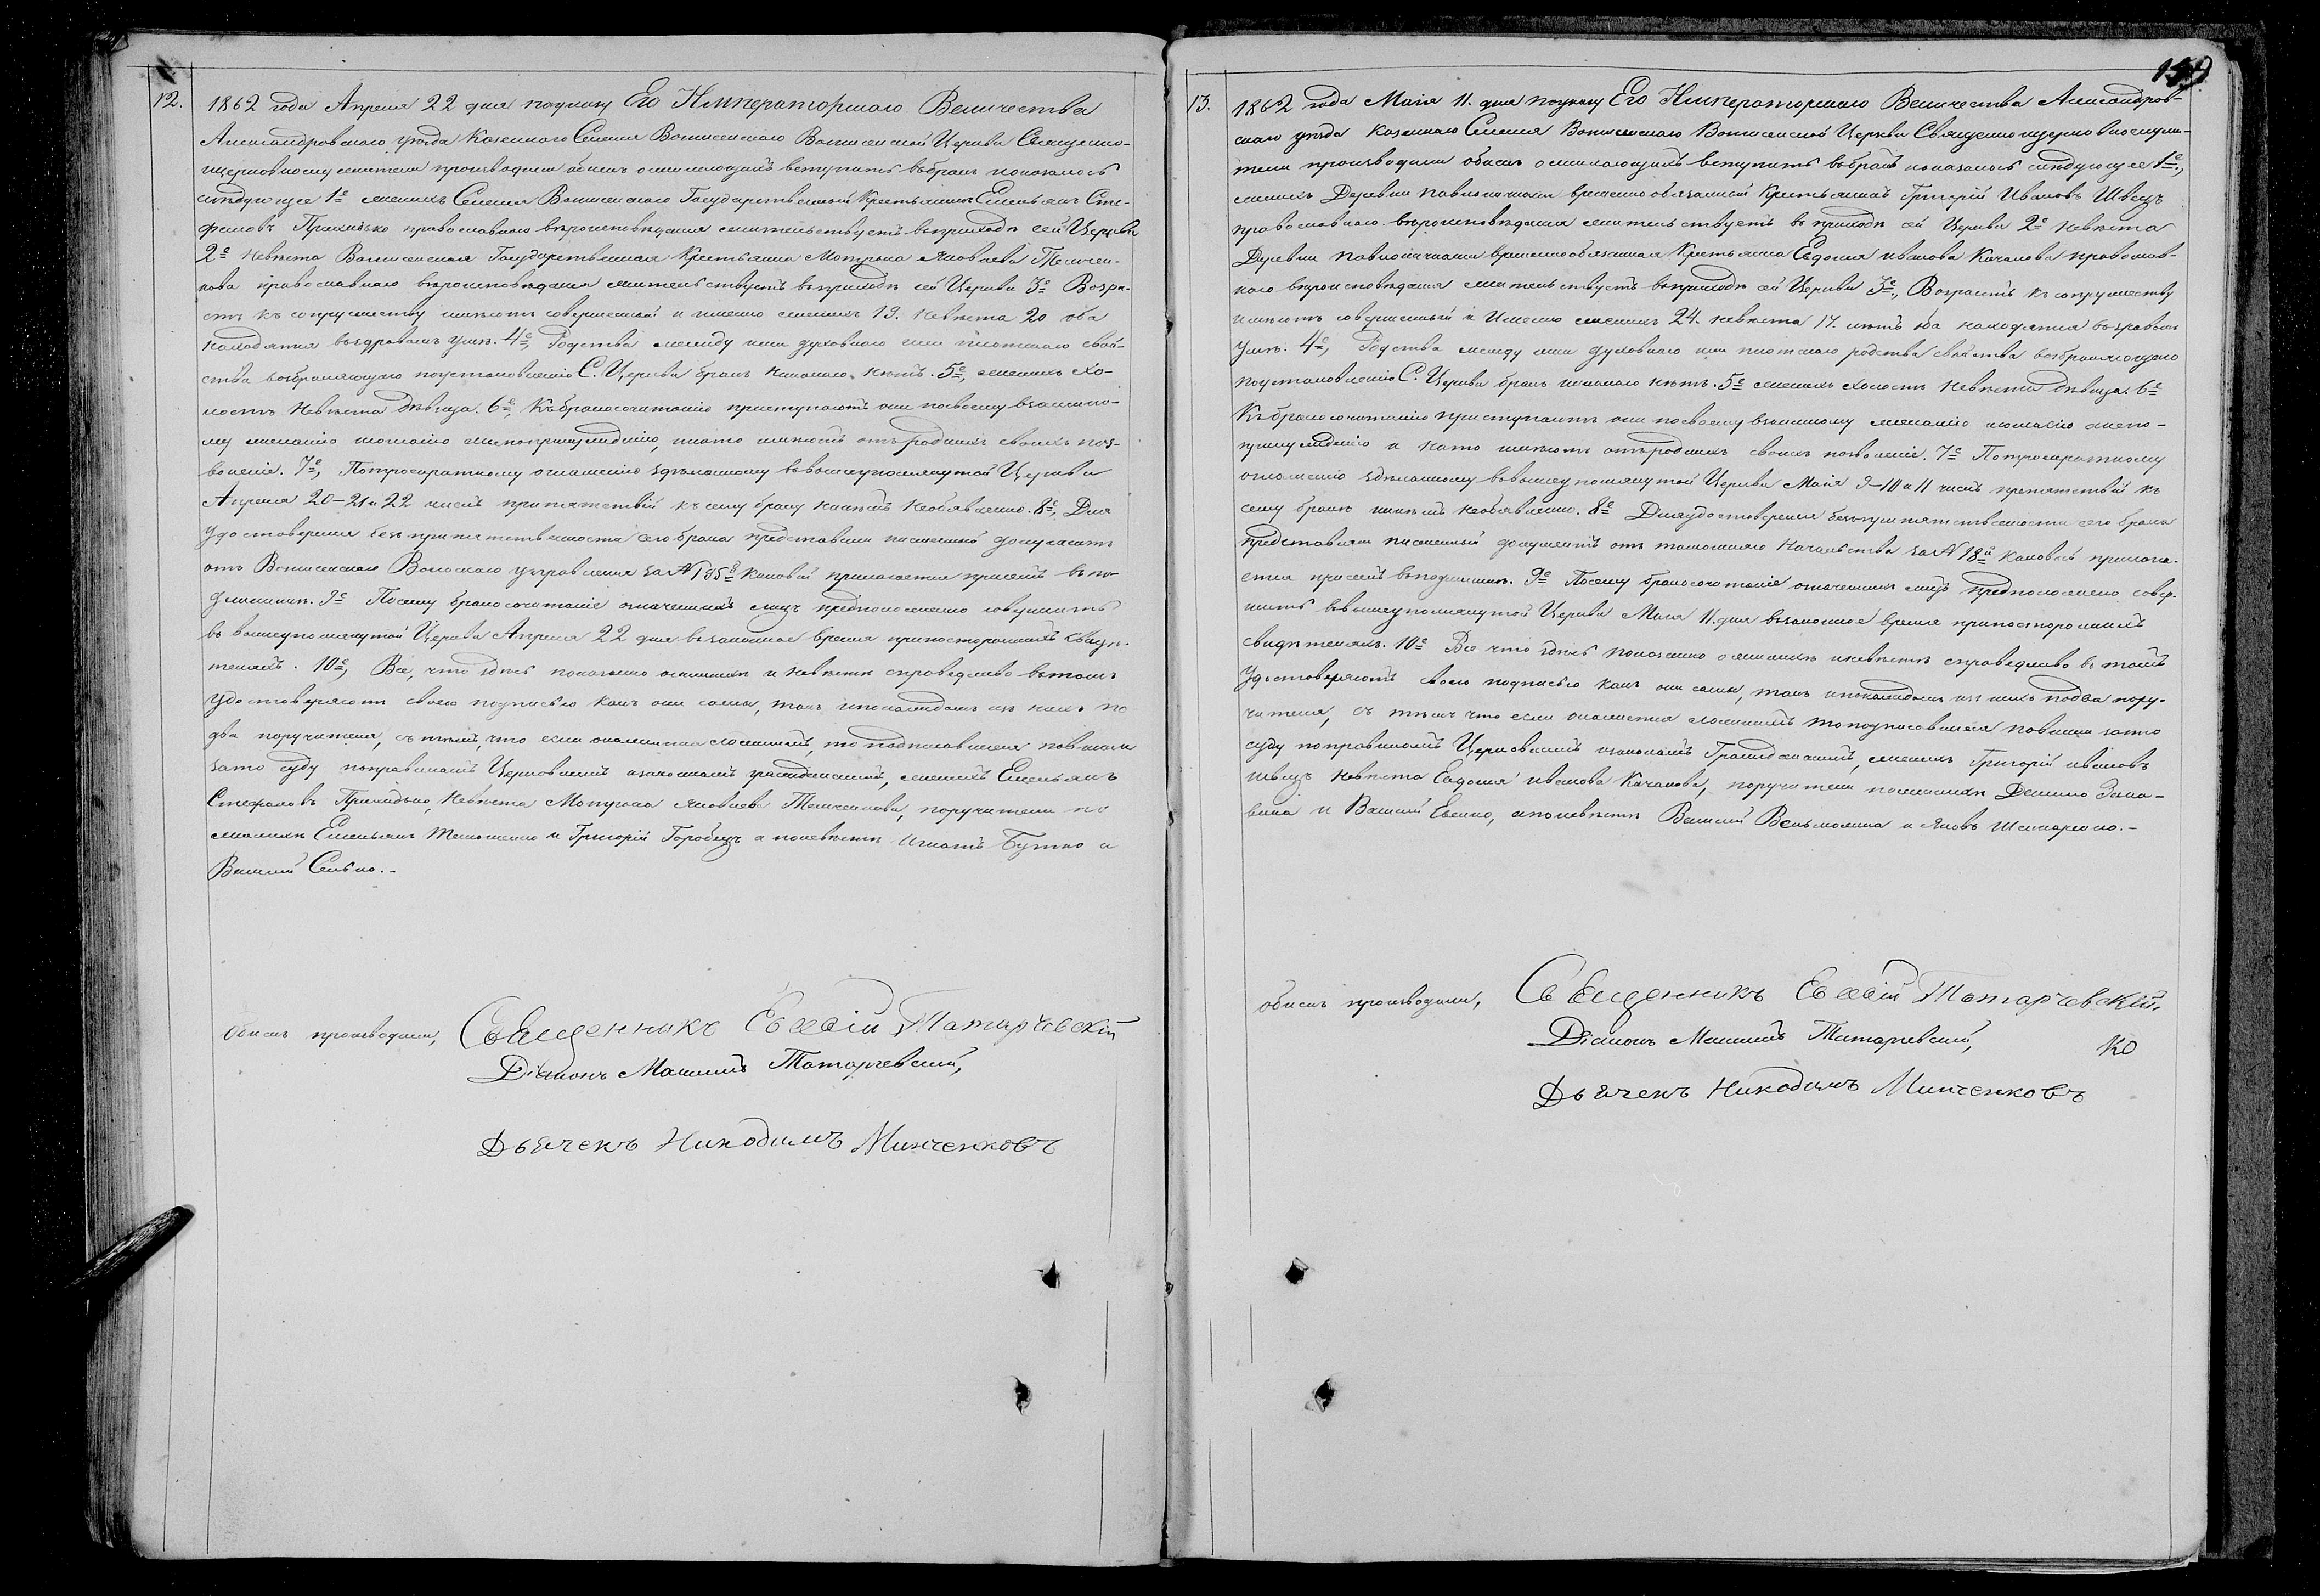 12.
1862 года Апреля 22 дня поуказу Его Императорскаго Величества
Александровскаго уезда Казеннаго Селенія Вознесенскаго Вознесенской Церкви Священно-
ицерковнослужители производили обыскъ ожелающихъ вступить въбракъ показалось
слѣдующее 1е женихъ Селенія Вознесенскаго Государственный Крестьянинъ Емельянъ Сте-
фановъ Приходько православнаго вѣроисповѣданія жительствуетъ въприходѣ сей Церкви
2е Невѣста Вознесенская Государственная Крестьянка Мотрона Яковлева
православнаго вѣроисповѣданія жительствуетъ въприходѣ сей Церкви 3е Возра-
стъ къ супружеству имѣютъ совершенный и именно женихъ 19. Невѣста 20 оба
находятся въздравомъ умѣ. 4е, Родства между ими духовнаго или плотскаго свой-
ства возбраняющаго поустановленію С. Церкви бракъ никакого нѣтъ. 5е, женихъ хо-
лостъ Невѣста дѣвица. 6е, Къбракосочетанію приступаютъ они посвоему взаимно-
му желанію исогласію анепопринужденію, инато имѣютъ отъродныхъ своихъ поз-
воленіе. 7е, Потроекратному оглашенію здѣланному въвышеупомянутой Церкви
Апреля 20-21 и 22 числъ припятствій къ сему браку никѣмъ необявленно. 8е, Для
удостоверенія безприпятственности сего брака представили письменной документъ
отъ Вознесенскаго Волоскаго управленія за № 195й каковый прилагается присемъ въпо-
длинникѣ. 9е Посему бракосочетаніе означенныхъ лицъ предположенно совершить
въ вышеупомянутой Церкви Апреля 22 дня взаконное время припостороннихъ свидѣ-
теляхъ. 10е, Все, что здѣсь показано оженихѣ и невѣстѣ справедливо втомъ
удостоверяютъ своею подписью какъ они сами, такъ ипокаждомъ из нихъ по
два поручителя, стѣмъ, что если окажется ложнымъ, то подписавшіеся повинны
зато суду поправиламъ Церковнымъ изаконамъ гражданскимъ, женихъ Емельянъ
Стефановъ Приходько, Невѣста Мотрона Яковлева, поручители по
женихѣ Емельянъ и Григорій Горобецъ а поневѣстѣ Игнатъ Бутко и
Василій
Обыскъ производили, Священникъ Евѳѳій Татарчевскій
Діаконъ Татарчевскій,
Дьячекъ Никодимъ Минченковъ
13.
1862 года Маія 11. дня поуказу Его Императорскаго Величества Александров-
скаго уѣзда Казеннаго Селенія Вознесенскаго Вознесенской Церкви Священноицерковнослужи-
тели производили обыскъ ожелающихъ вступить въбракъ показалось слѣдующее 1е,
женихъ Деревни временнообязанный Крестьянинъ Григорій Ивановъ Швецъ
православнаго вѣроисповѣданія жительствуетъ въ приходѣ сей Церкви 2е Невѣста
Деревни временнообязанная Крестьянка Евдокія Иванова Качанова православ-
наго вѣроисповѣданія жительствуетъ въприходѣ сей Церкви 3е, Возрастъ къ супружеству
имѣютъ совершенный и Именно женихъ 24. невѣста 17. лѣтъ оба находятся въздравомъ
умѣ. 4е, Родства между ими духовнаго или плотскаго родства свойства возбраняющаго
поустановленію С. Церкви бракъ никакого нѣтъ. 5е женихъ холостъ Невѣста дѣвица. 6е
Къбракосочетанію приступаютъ они посвоему взаимному желанію исогласію анепо-
принужденію и нато имѣютъ отъродныхъ своихъ позволеніе. 7е Потроекратному
оглашенію здѣланному въвышеупомянутой Церкви Маія 9-10 и 11 числъ препятствій къ
сему браку никѣмъ необявленно. 8е Дляудостоверенія безприпятственности сего брака
представили письменный документъ отъ тамошняго Начальства за № 18й каковой прилага-
ется присемъ въподлинникѣ. 9е Посему бракосочетаніе означенныхъ лицъ предположено совер-
шить ввышеупомянутой Церкви Маія 11. дня взаконное время припостороннихъ
свидѣтеляхъ. 10е Все что здѣсь показанно оженихѣ иневѣстѣ справедливо в томъ
Удостоверяютъ своею подписью какъ они сами, такъ ипокаждомъ изъ нихъ подва пору-
чителя, съ тѣмъ что если окажется ложнымъ топодписавшіеся повинны зато
суду поправиламъ Церковнымъ изаконамъ Гражданскимъ, женихъ Григорій Ивановъ
Швецъ Невѣста Евдокія Иванова Качанова, поручители поженихѣ
и Василій, апоневѣстѣ Василій и Яковъ
обыскъ производили, Священникъ Евѳѳій Татарчевскій.
Діаконъ Татарчевскій,
Дьячекъ Никодимъ Минченковъ